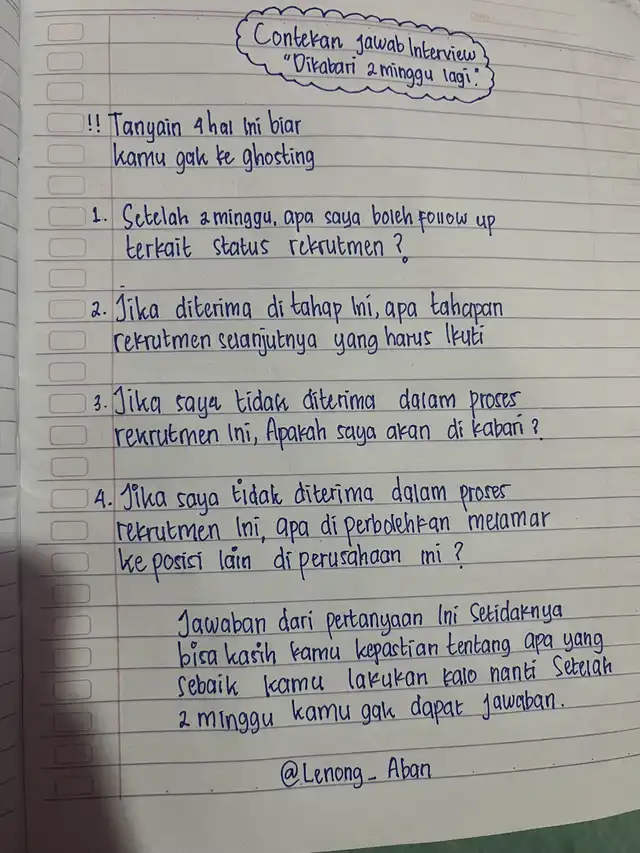 Contekan Jawab Interview
"Dikabari 2 minggu lagi."
!! Tanyain 4 hal Ini biar
kamu gak ke ghosting
1. Setelah 2 minggu, apa saya boleh follow up
terkait status rekrutmen ?
2. Jika diterima di tahap Ini, apa tahapan
rekrutmen selanjutnya yang harus Ikuti
3. Jika saya tidak diterima dalam proses
rekrutmen Ini, Apakah saya akan di kabari ?
4. Jika saya tidak diterima dalam proses
rekrutmen Ini, apa di perbolehkan melamar
ke posisi lain di perusahaan ini ?
Jawaban dari pertanyaan Ini Setidaknya
bisa kasih kamu kepastian tentang apa yang
sebaik kamu lakukan kalo nanti Setelah
2 minggu kamu gak dapat Jawaban.
@Lenong_Aban